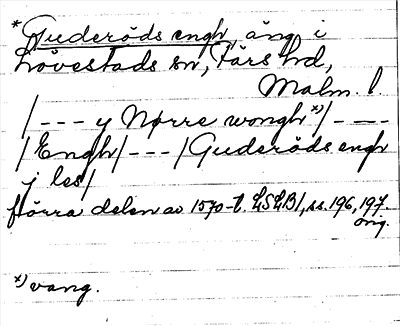 *Guderöds engh, äng i
Lövestads sn, Färs hd,
Malm. l.
/--- y Nørre wongh x)/---
/Engh/---/Guderöds engh
j les/
förra delen av 1570-t. LSLB1, ss. 196, 197.
orig.
x) vang.